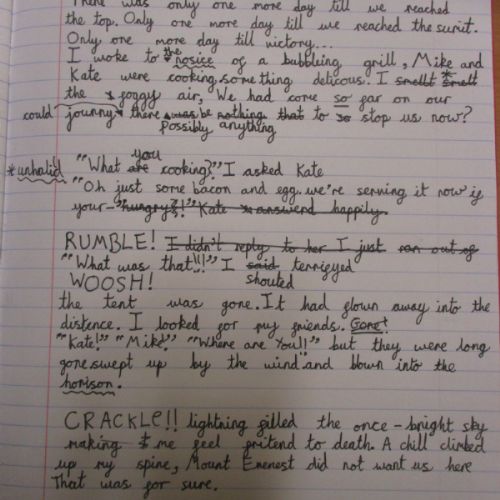 There was only one more day till we reached
the top. Only one more day till we reached the sumit.
Only one more day till victory...
I woke to the nosice of a bubbeling grill, Mike and
Kate were cooking something delicous. I smellt smelt
the foggy air, We had come so far on our
could journy there was be nothing that to so stop us now?
possibly anything
you
*unhalid "What are cooking?" I asked Kate
"Oh just some bacon and egg.. we're serving it now if
your-"hungry?!" Kate answerd happily.
RUMBLE! I didn't reply to her I just ran out of
"What was that!!!" I said terrifyed
WOOSH! shouted
the tent was gone. It had flown away into the
distence. I looked for my friends. Gone!
"Kate!" "Mike" "Where are You!!" but they were long
gone swept up by the wind and blown into the
horison.
CRACKLE!! lightning filled the once-bright sky
making me feel pretend to death. A chill climbed
up my spine, Mount Enenest did not want us here
That was for sure.